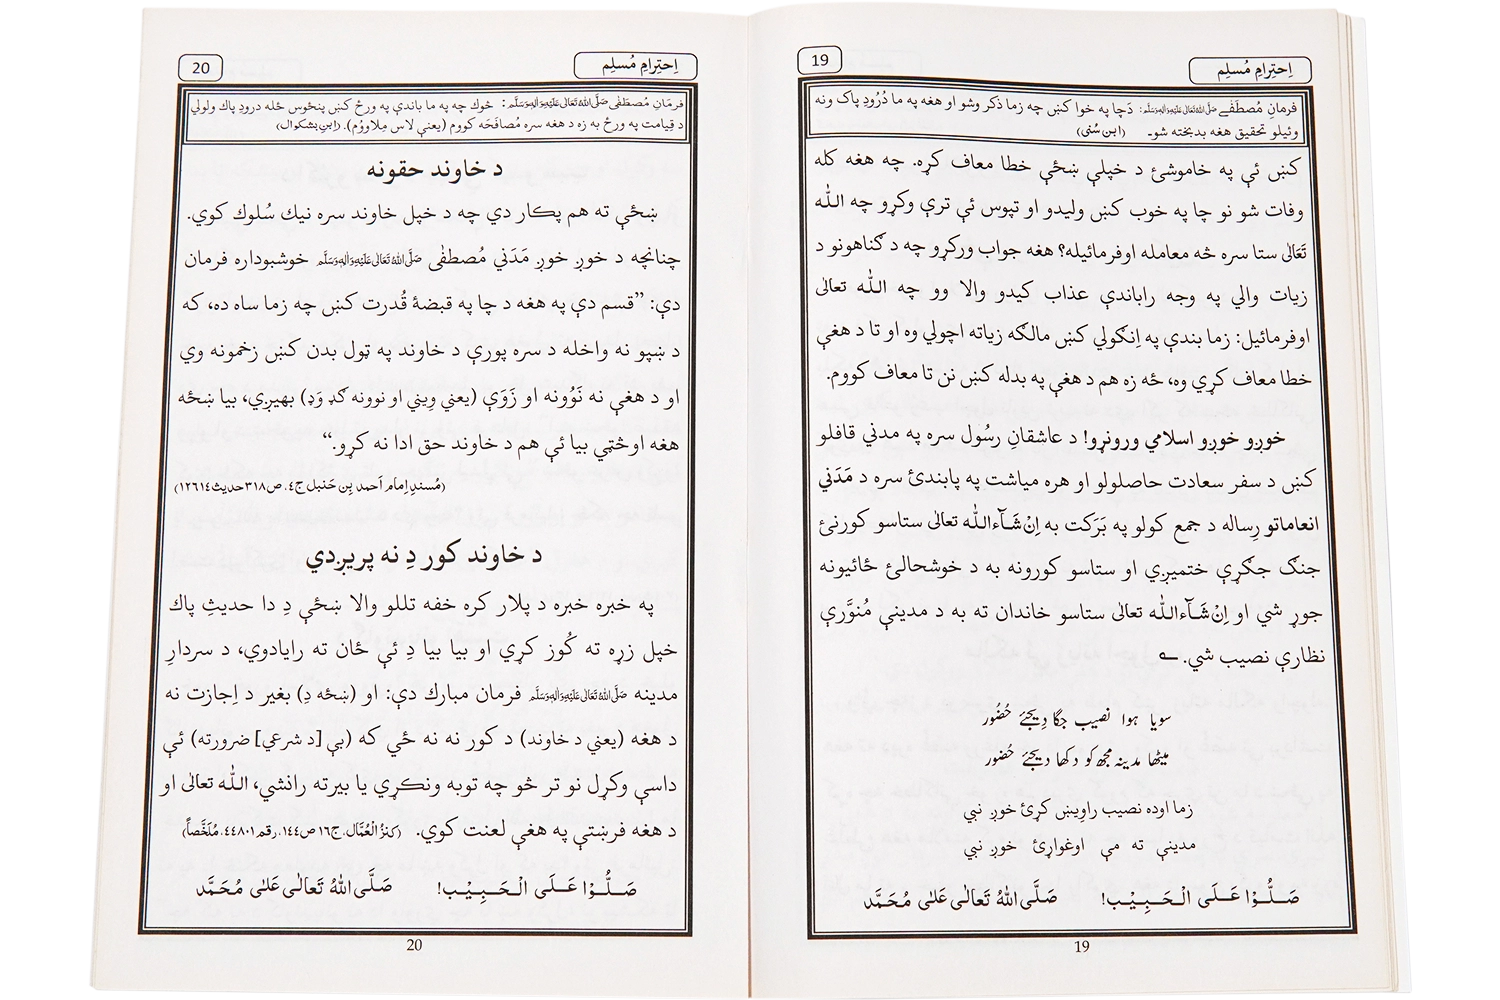 19
اِحتِرامِ مُسلِم
فرمانِ مُصطَفٰے صَلَّى اللهُ تَعَالٰى عَلَيْهِ وَاٰلِهٖ وَسَلَّم: دَچا په خوا کښ چه زما ذکر وشو او هغه په ما دُرُودِ پاک ونه
وئیلو تحقیق هغه بدبخته شو۔ (ابن سُنی)
کښ ئې په خاموشئ د خپلې ښځې خطا معاف کړه. چه هغه کله
وفات شو نو چا په خوب کښ ولیدو او تپوس ئې ترې وکړو چه اللّٰه
تَعَالٰی ستا سره څه معامله اوفرمائیله؟ هغه جواب ورکړو چه د ګناهونو د
زیات والي په وجه راباندې عذاب کیدو والا وو چه اللّٰه تعالیٰ
اوفرمائیل: زما بندې په اِنګولي کښ مالګه زیاته اچولې وه او تا د هغې
خطا معاف کړې وه، څه زه هم د هغې په بدله کښ نن تا معاف کووم.
خوږو خوږو اسلامي ورونړو! د عاشقانِ رسُول سره په مدني قافلو
کښ د سفر سعادت حاصلولو او هره میاشت په پابندئ سره د مَدَني
انعاماتو رِساله د جمع کولو په بَرَکت به اِنْ شَآءاللّٰه تعالیٰ ستاسو کورنئ
جنګ جګړې ختمیږي او ستاسو کورونه به د خوشحالئ ځائیونه
جوړ شي او اِنْ شَآءاللّٰه تعالیٰ ستاسو خاندان ته به د مدینې مُنوَّرې
نظارې نصیب شي. ؂
سویا ہوا نصیب جگا دیجئے حُضُور
میٹھا مدینہ مجھ کو دکھا دیجئے حُضُور
زما اوده نصیب راویښ کړئ خوږ نبي
مدینې ته مې اوغواړئ خوږ نبي
صَلُّوْا عَلَى الْحَبِيْب! صَلَّى اللهُ تَعَالٰى عَلٰى مُحَمَّد
19
20
اِحتِرامِ مُسلِم
فرمَانِ مُصطَفٰی صَلَّى اللهُ تَعَالٰى عَلَيْهِ وَاٰلِهٖ وَسَلَّم: څوك چه په ما باندې په ورځ کښ پنځوس ځله درودِ پاك ولولي
د قِیامت په ورځ به زه د هغه سره مُصافَحَه کووم (یعنې لاس مِلاووُم). (ابنِ بشکوال)
د خاوند حقونه
ښځې ته هم پکار دي چه د خپل خاوند سره نیك سُلوك کوي.
چنانچه د خوږ خوږ مَدَني مُصطفٰی صَلَّى اللهُ تَعَالٰى عَلَيْهِ وَاٰلِهٖ وَسَلَّم خوشبوداره فرمان
دې: ”قسم دې په هغه د چا په قبضۂ قُدرت کښ چه زما ساه ده، که
د ښپو نه واخله د سره پورې د خاوند په ټول بدن کښ زخمونه وي
او د هغې نه نَوُونه او زَوَې (یعنې وِینې او نوونه ګډ وَډ) بهیږي، بیا ښځه
هغه اوڅټي بیا ئې هم د خاوند حق ادا نه کړو.“
(مُسندِ اِمام اَحمد بِن حَنبل ج٤، ص٣١٨ حدیث ١٢٦١٤)
د خاوند کور دِ نه پریږدي
په خبره خبره د پلار کره خفه تللو والا ښځې دِ دا حدیثِ پاك
خپل زړه ته کُوز کړي او بیا بیا دِ ئې ځان ته رایادوي، د سردارِ
مدینه صَلَّى اللهُ تَعَالٰى عَلَيْهِ وَاٰلِهٖ وَسَلَّم فرمان مبارك دې: او (ښځه دِ) بغیر د اِجازت نه
د هغه (یعنې د خاوند) د کور نه نه ځي که (بې [د شرعې] ضرورته) ئې
داسې وکړل نو تر څو چه توبه ونکړي یا بیرته رانشي، اللّٰه تعالیٰ او
د هغه فرښتې په هغې لعنت کوي. (کنزُ الْعُمَّال، ج١٦ ص١٤٤، رقم ٤٤٨٠١، مُلَخَّصاً)
صَلُّوْا عَلَى الْحَبِيْب! صَلَّى اللهُ تَعَالٰى عَلٰى مُحَمَّد
20